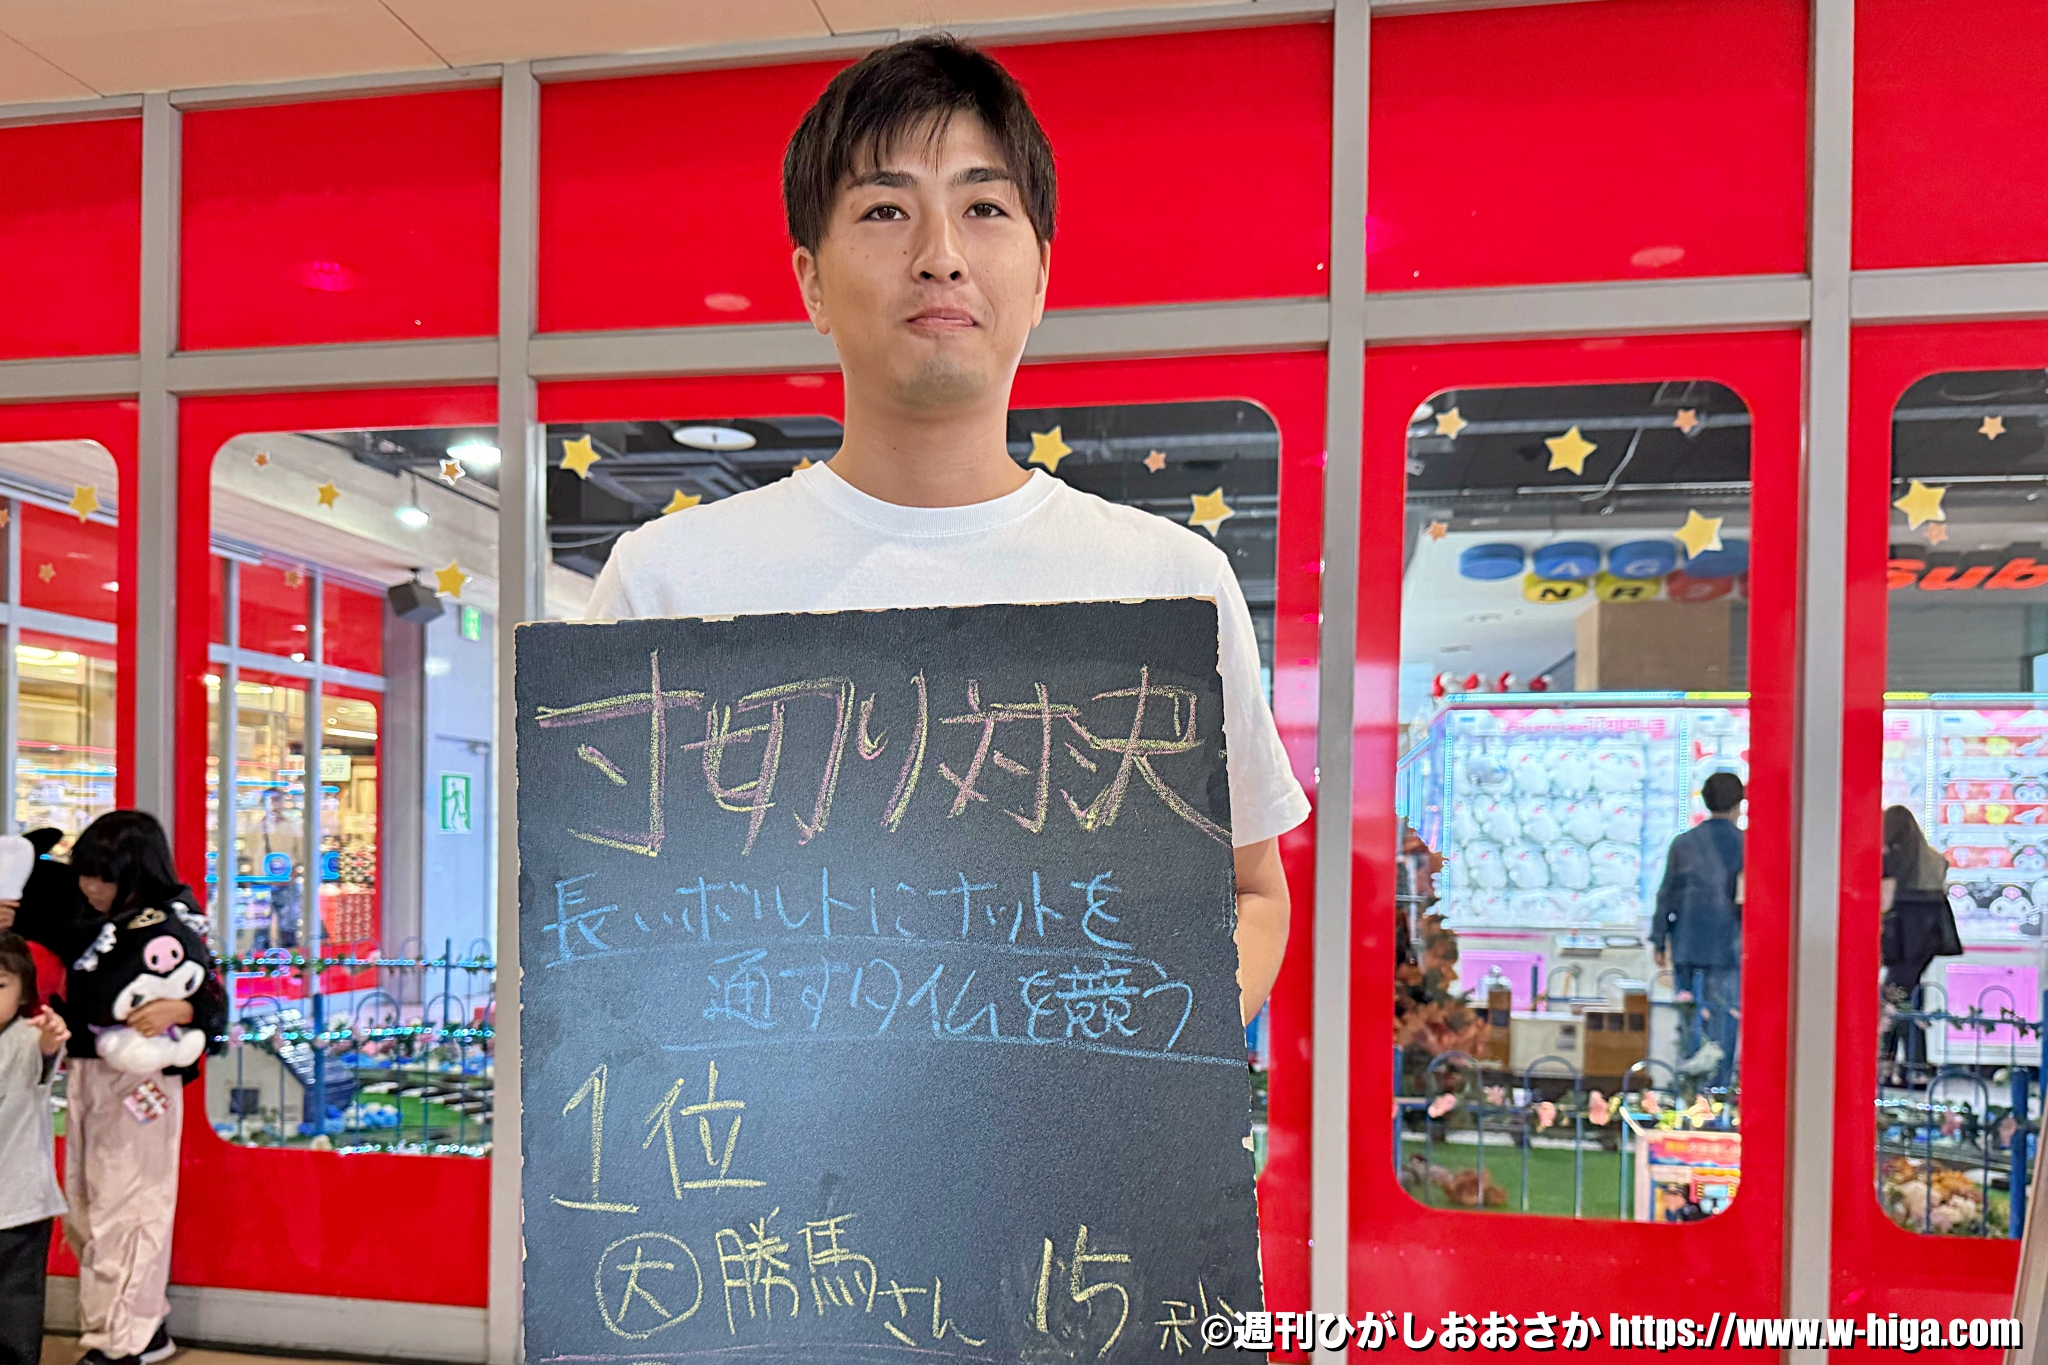 寸切り対決
長いボルトにナットを
通すタイムを競う
1位
大 勝馬さん 15秒
©週刊ひがしおおさか https://www.w-higa.com